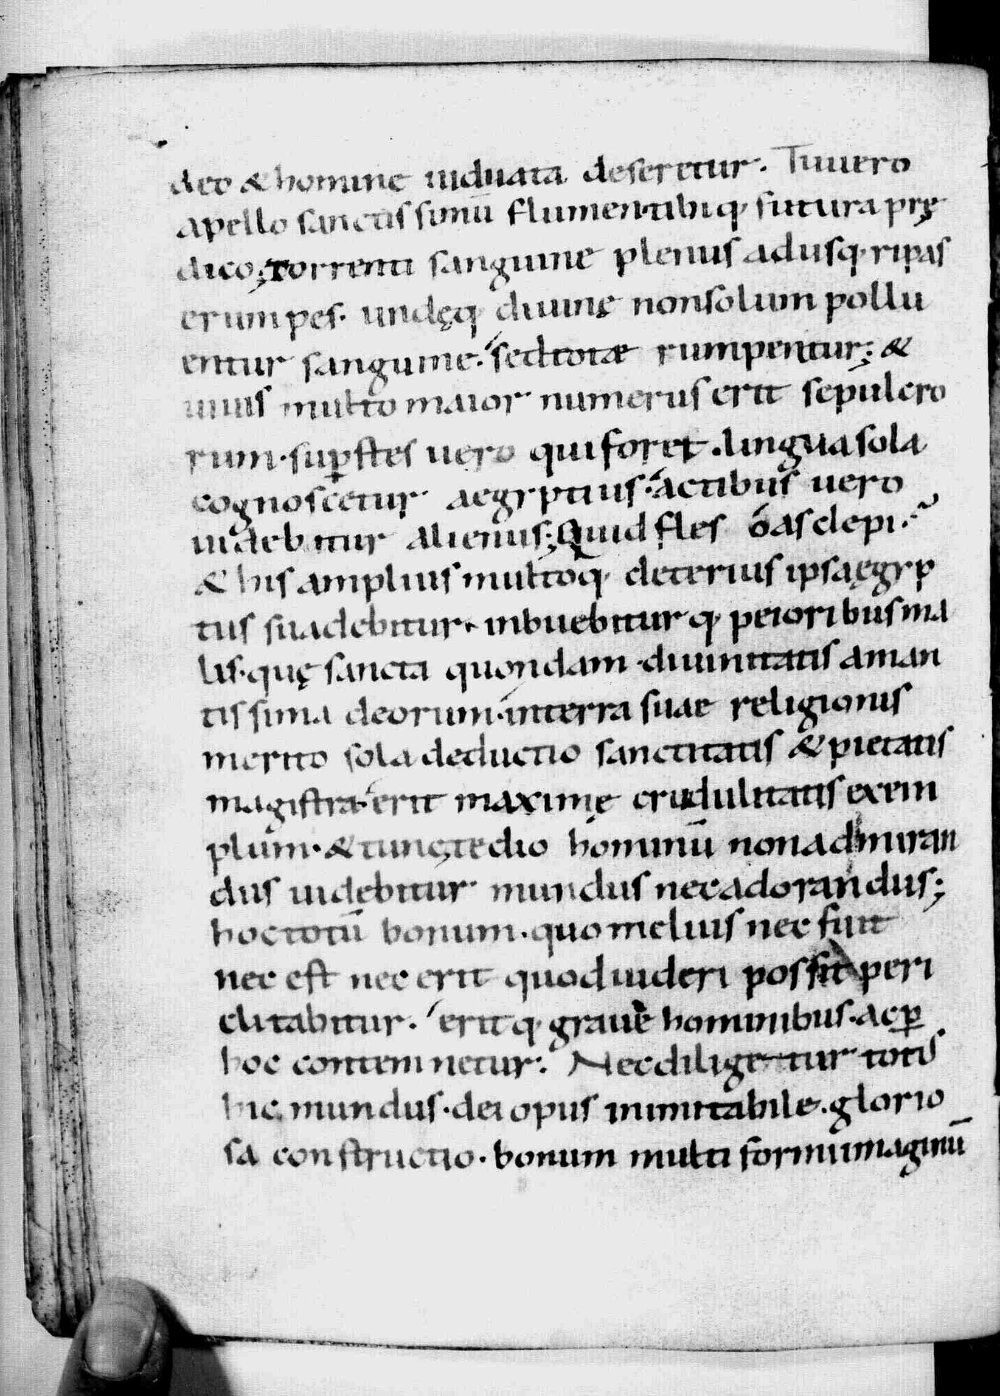 deo & homine uiduata deseretur. Tu uero
apello sanctissimū flumen·tibiq· futura prę
dico; torrenti sanguine plenus adusq· ripas
erumpes· undęq· diuinę non solum pollu
entur sanguine· sed totæ rumpentur; &
uiuis multo maior numerus erit sepulcro
rum·sup̄stes uero qui foret·lingua sola
cognoscetur aegyptius·actibus uero
uidebitur alienus; Quid fles o asclepi·
& his amplius multoq· deterius ipsa ęgyp
tus suadebitur· inbuebiturq· peioribus ma
lis·quę sancta quondam·diuinitatis aman
tissima deorum·in terra suae religionis
merito sola deductio sanctitatis & pietatis
magistra·erit maximę crudulitatis exem
plum·& tunc tedio hominū non admiran
dus uidebitur mundus nec adorandus;
hoc totū bonum·quo melius nec fuit
nec est nec erit quod uideri possit peri
clitabitur· eritq· graue hominibus·ac p̄
hoc contemnetur· Nec diligetur totis
hic mundus·dei opus inimitabile·glorio
sa constructio·bonum multiformi imaginū